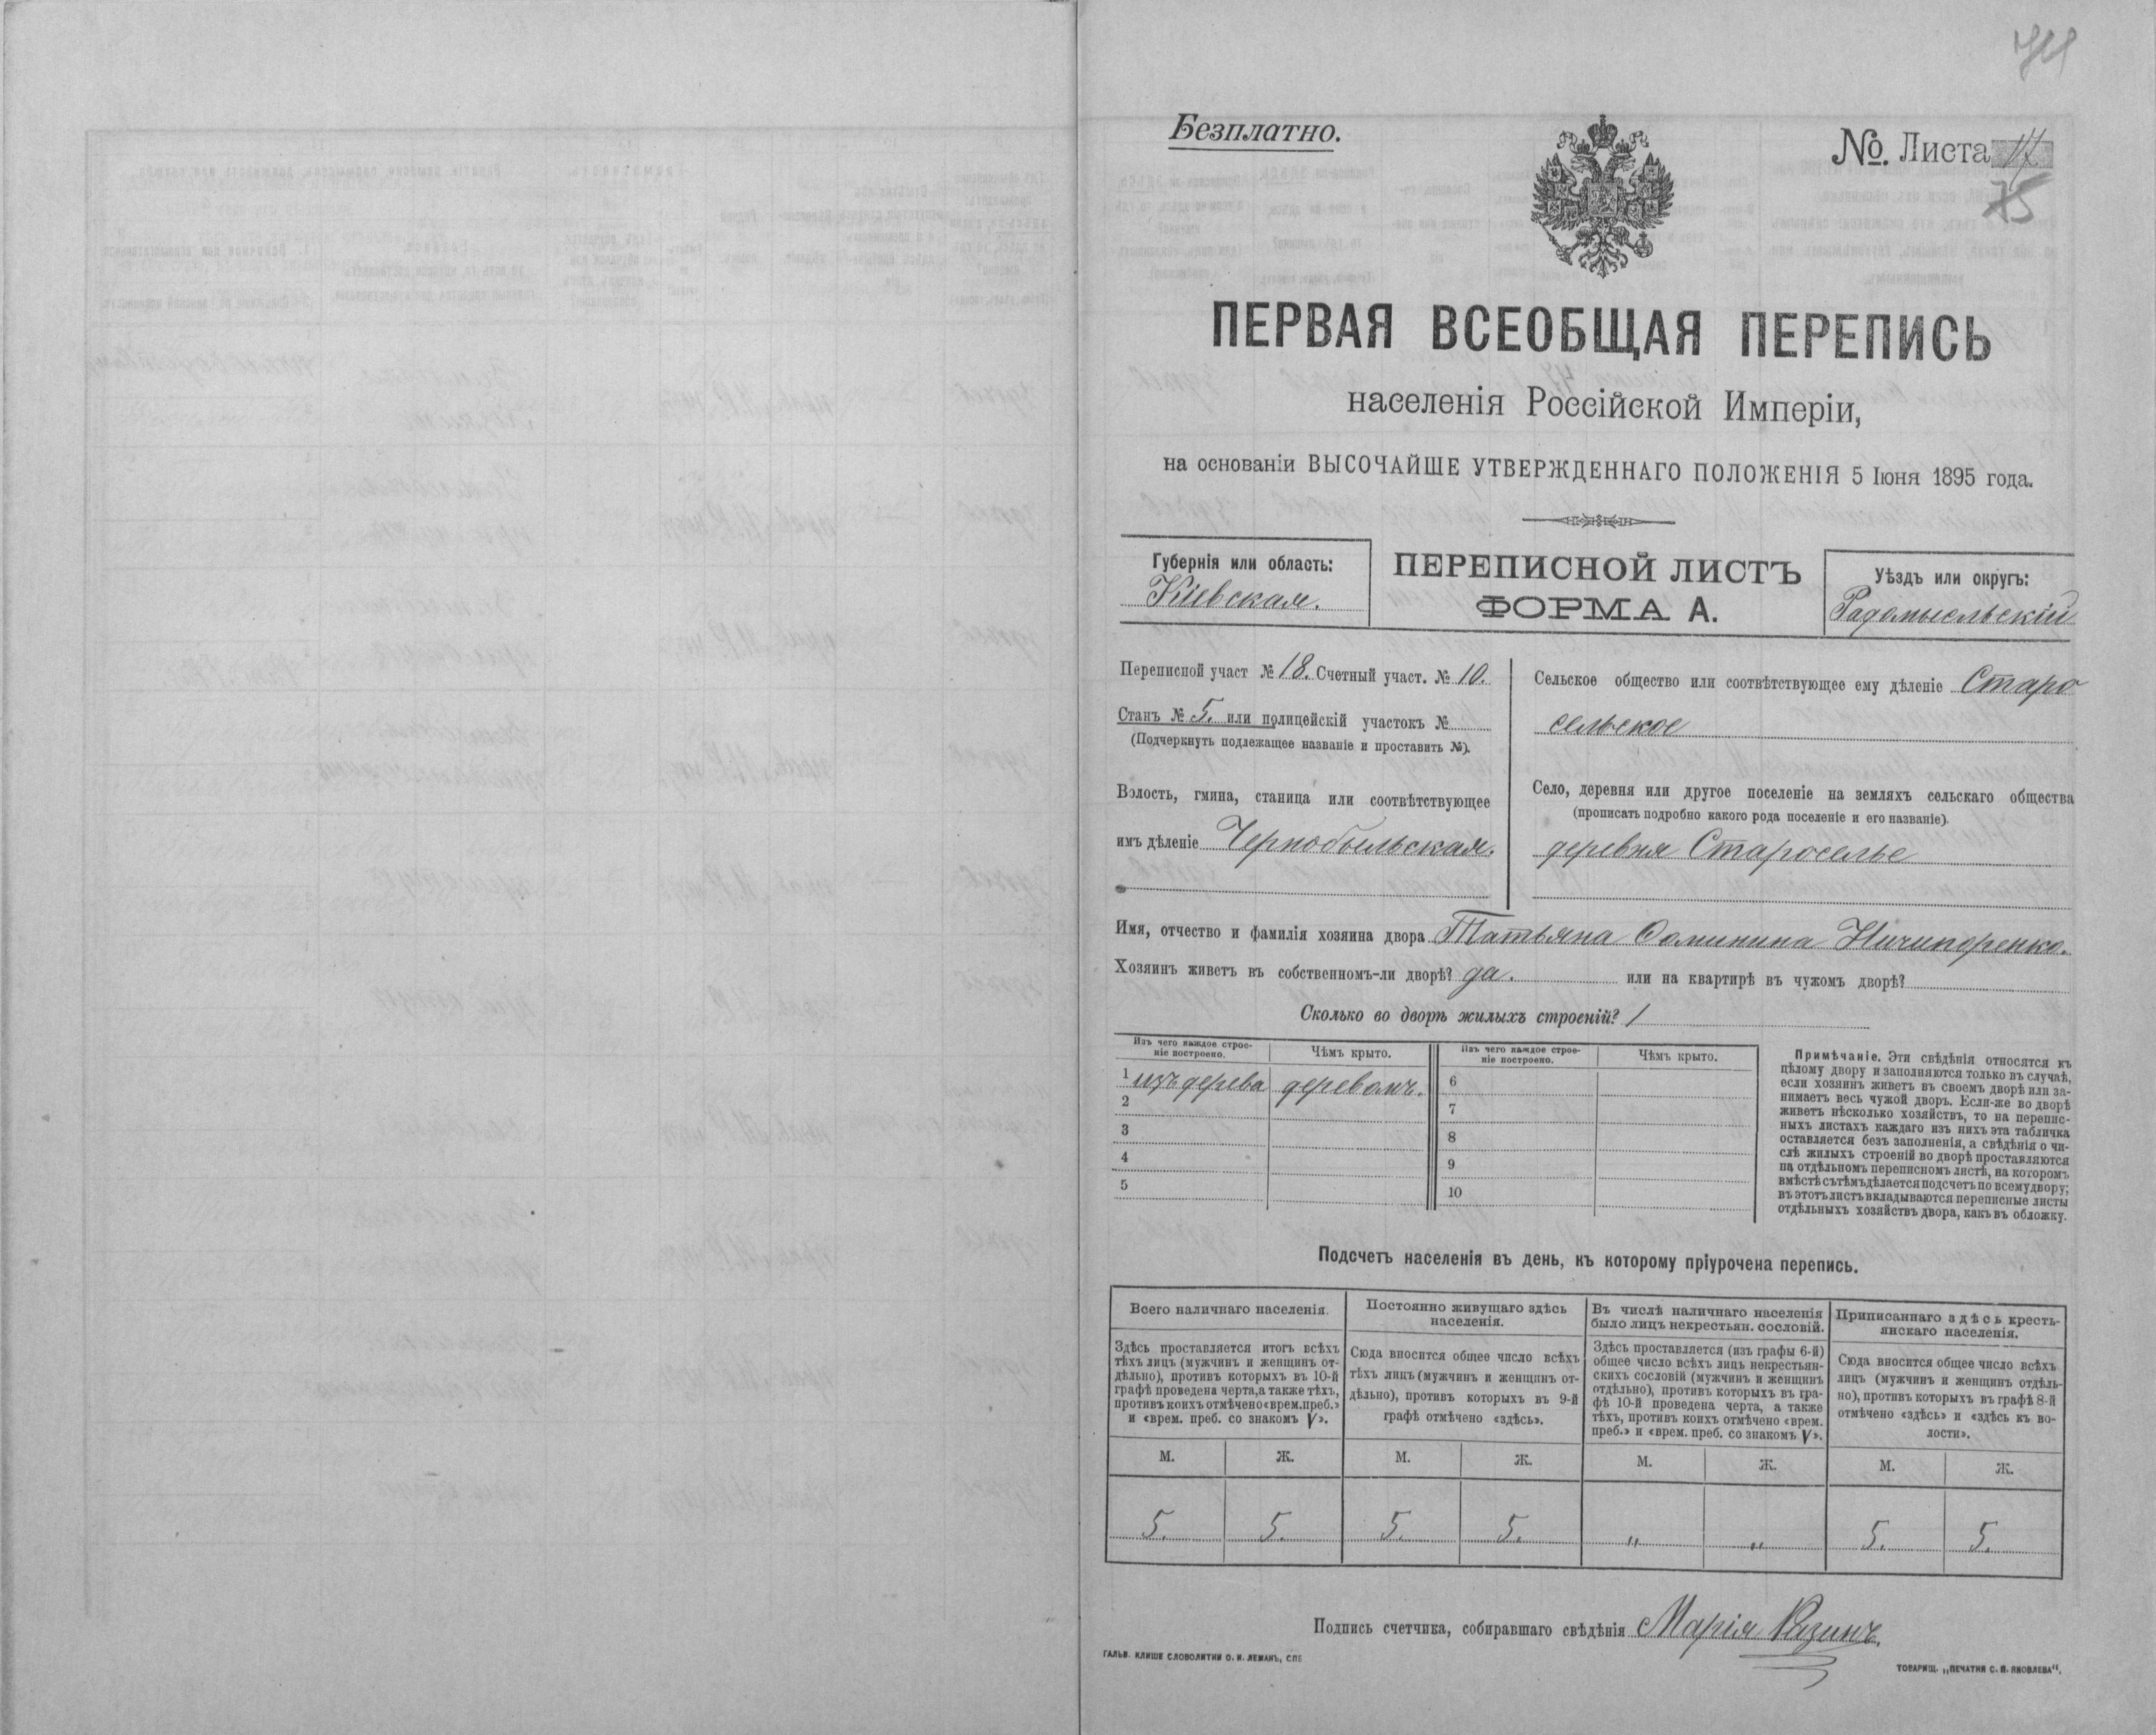 44
Безплатно.
№. Листа 17
75
ПЕРВАЯ ВСЕОБЩАЯ ПЕРЕПИСЬ
населенія Россійской Имперіи,
на основаніи ВЫСОЧАЙШЕ УТВЕРЖДЕННАГО ПОЛОЖЕНІЯ 5 Іюня 1895 года.
Губернія или область:
Кіевская.
ПЕРЕПИСНОЙ ЛИСТЪ
ФОРМА А.
Уѣздъ или округъ:
Радомысльскій
Переписной участ № 18. Счетный участ. № 10.
Станъ № 5. или полицейскій участокъ №
(Подчеркнуть подлежащее названіе и проставить №).
Волость, гмина, станица или соотвѣтствующее
имъ дѣленіе Чернобыльская.
Сельское общество или соотвѣтствующее ему дѣленіе Старо
сельское
Село, деревня или другое поселеніе на земляхъ сельскаго общества
(прописать подробно какого рода поселеніе и его названіе).
деревня Староселье
Имя, отчество и фамилія хозяина двора Татьяна Фоминина Ничипоренко.
Хозяинъ живетъ въ собственномъ-ли дворѣ? да. или на квартирѣ въ чужомъ дворѣ?
Сколько во дворѣ жилыхъ строеній? 1
Изъ чего каждое строе-
ніе построено.
Чѣмъ крыто.
Изъ чего каждое строе-
ніе построено.
Чѣмъ крыто.
1 изъ дерева деревомъ. 6
2 7
3 8
4 9
5 10
Примѣчаніе. Эти свѣдѣнія относятся къ
цѣлому двору и заполняются только въ случаѣ,
если хозяинъ живетъ въ своемъ дворѣ или за-
нимаетъ весь чужой дворъ. Если-же во дворѣ
живетъ нѣсколько хозяйствъ, то на перепис-
ныхъ листахъ каждаго изъ нихъ эта табличка
оставляется безъ заполненія, а свѣдѣнія о чи-
слѣ жилыхъ строеній во дворѣ проставляются
на отдѣльномъ переписномъ листѣ, на которомъ
вмѣстѣ съ тѣмъ дѣлается подсчетъ по всему двору;
въ этотъ листъ вкладываются переписные листы
отдѣльныхъ хозяйствъ двора, какъ въ обложку.
Подсчетъ населенія въ день, къ которому пріурочена перепись.
Всего наличнаго населенія.
Здѣсь проставляется итогъ всѣхъ
тѣхъ лицъ (мужчинъ и женщинъ от-
дѣльно), противъ которыхъ въ 10-й
графѣ проведена черта, а также тѣхъ,
противъ коихъ отмѣчено «врем. преб.»
и «врем. преб. со знакомъ V».
Постоянно живущаго здѣсь
населенія.
Сюда вносится общее число всѣхъ
тѣхъ лицъ (мужчинъ и женщинъ от-
дѣльно), противъ которыхъ въ 9-й
графѣ отмѣчено «здѣсь».
Въ числѣ наличнаго населенія
было лицъ некрестьян. сословій.
Здѣсь проставляется (изъ графы 6-й)
общее число всѣхъ лицъ некрестьян-
скихъ сословій (мужчинъ и женщинъ
отдѣльно), противъ которыхъ въ гра-
фѣ 10-й проведена черта, а также
тѣхъ, противъ коихъ отмѣчено «врем.
преб.» и «врем. преб. со знакомъ V».
Приписаннаго здѣсь кресть-
янскаго населенія.
Сюда вносится общее число всѣхъ
лицъ (мужчинъ и женщинъ отдѣль-
но), противъ которыхъ въ графѣ 8-й
отмѣчено «здѣсь» и «здѣсь въ во-
лости».
М. Ж. М. Ж. М. Ж. М. Ж.
5. 5. 5. 5. " " 5. 5.
Подпись счетчика, собиравшаго свѣдѣнія Марія
ГАЛЬВ. КЛИШЕ СЛОВОЛИТНИ О. И. ЛЕМАНЪ, СПБ
ТОВАРИЩ. „ПЕЧАТНЯ С. П. ЯКОВЛЕВА".